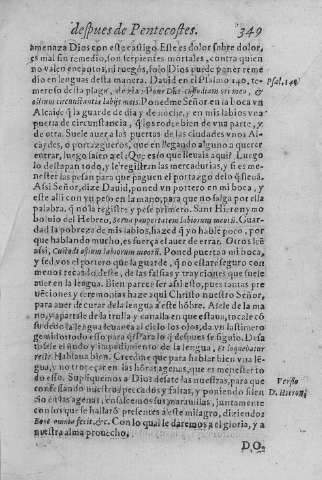 despues de Pentecostes. 349
amenaza Dios con este castigo. Este es dolor sobre dolor,
es mal sin remedio, son serpientes mortales, contra quien
no valen encantos, ni ruegos, solo Dios puede poner reme
dio en lenguas desta manera. David en el Psalmo 140, te- Psal. 140
meroso desta plaga, dezia: Pone Dñe custodiam ori meo, &
ostium circumstantiæ labijs meis. Ponedme Señor en la boca vn
Alcaide q̃ la guarde de dia y de noche, y en mis labios vna
puerta de circunstancia, q̃ los rodee bien de vna parte, y
de otra. Suele auer a las puertas de las ciudades vnos Al-
caydes, o portazgueros, que en llegando alguno a querer
entrar, luego salen a el: Que es lo que lleuais aqui? Luego
lo destapan todo, y le registran las mercadurias, y si es me-
nester las pesan para que paguen el portazgo
Assi Señor, dize Dauid, poned vn portero en mi boca, y
esse alli con vn peso en la mano, para que no salga por ella
palabra, q̃ no la registre y pese primero. San Hieronymo
boluio del Hebreo, Serua paupertatem labiorum meorũ. Guar-
dad la pobreza de mis labios, hazed q̃ yo hable poco, por
que hablando mucho, es fuerça el auer de errar. Otros leẽ
assi, labiorum meorũ. Poned puerta a mi boca,
y sed vos el portero que la guarde, q̃ no estare seguro con
menos recado deste, de las falsias y trayciones que suele
auer en la lengua. Bien parece ser assi esto, pues tantas pre
uenciones y ceremonias haze aqui Christo nuestro Señor,
para auer de curar de la lengua a este hõbre. Asele de la ma
no, y apartale de la trulla y canalla en que estaua, tocale cõ
su dedo la lengua leuanta al cielo los ojos, da vn lastimero
gemido: todo esso para
tosele el ñudo y impedimento de la lengua, Et loquebatur
recte. Hablaua bien. Creedme que para hablar bien vna lẽ-
gua, y no tropeçar en las horataguas, que es menester to
do esso. Supliquemos a Dios desate las nuestras, para que Versio
confessando nuestros peccados y faltas, y poniendo silen D. Hieron.
cio en las agenas, ensalcemos sus marauillas, juntamente
con los que se hallarõ presentes a este milagro, diziendo:
Bene omnia fecit, &c. Con lo qual le daremos a el gloria, y a
nuestra alma prouecho.
DO-